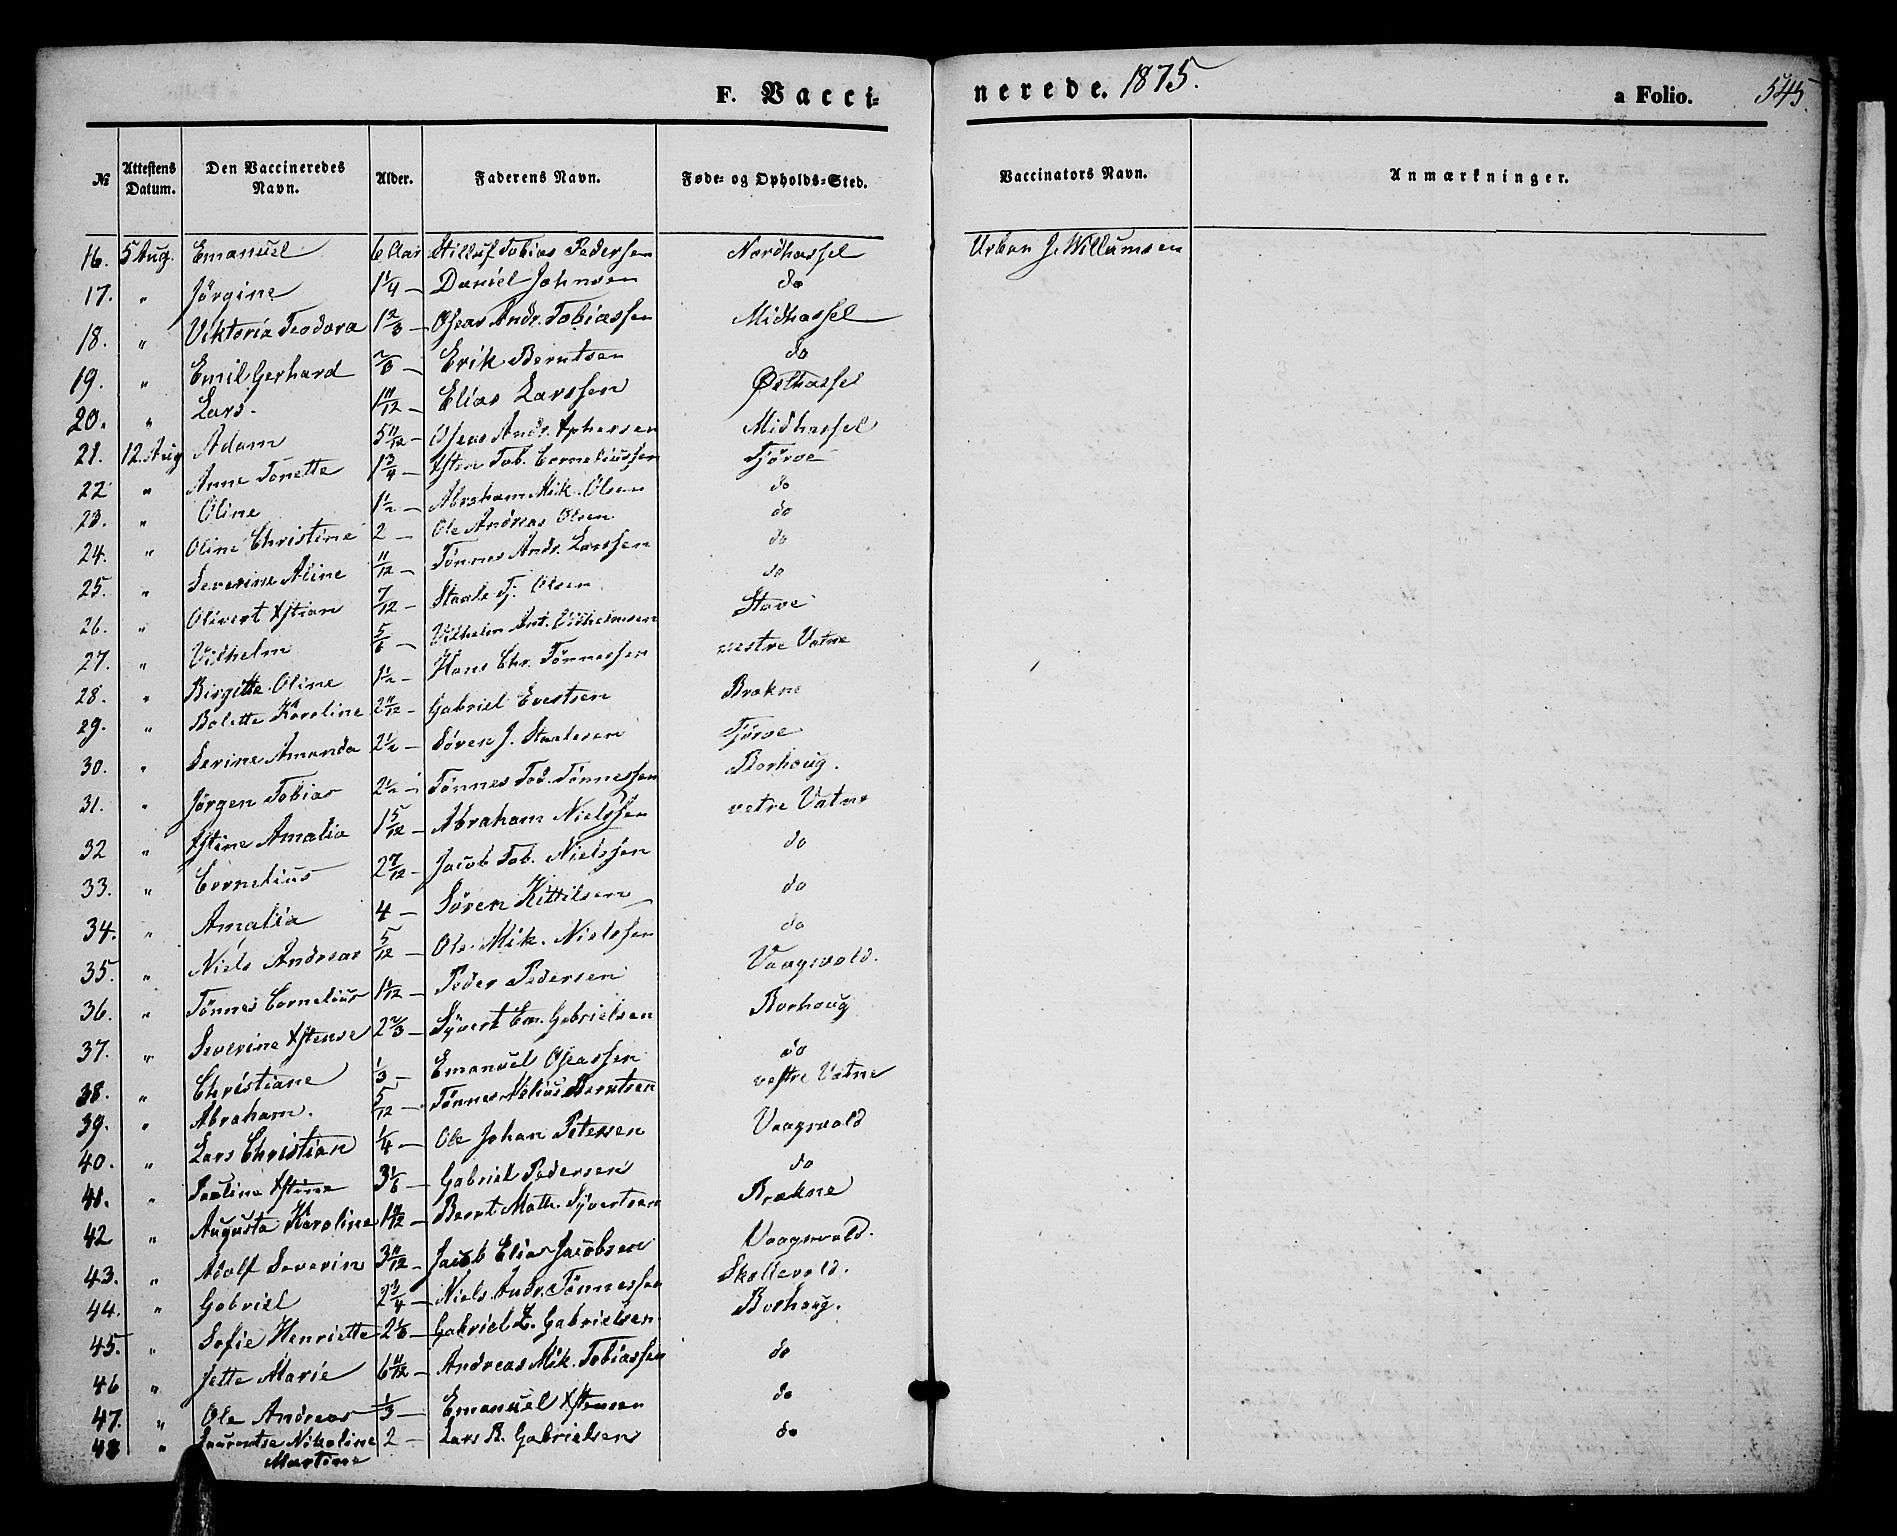 F. Vacci-
nerede. 1875.
a Folio. 545.
№ Attestens Datum. Den Vaccineredes Navn. Alder. Faderens Navn. Føde- og Opholds-Sted. Vaccinators Navn. Anmærkninger.
16. 5 Aug. Emanuel 6 Aar Tobias Pedersen Nordhassel Urban J. Willumsen
17. " Jørgine 1 1/4 — Daniel Johnsen do
18. " Viktoria Teodora 1 2/3 — Oseas Andr. Tobiassen Midhassel
19. " Emil Gerhard 2/3 — Erik Berntsen do
20. " Lars. 1 11/12 — Elias Larssen Østhassel
21. 12. Aug Adam 5 11/12 — Oseas Andr. Midhassel
22 " Anne Tonette 1 3/4 — Xsten Tob. Corneliussen Tjørve
23. " Oline 1 1/2 — Abraham Mik. Olsen do
24. " Oline Christine 2 — Ole Andreas Olsen do
25. " Severine Aline 11/12 — Tønnes Andr. Larssen do
26. " Olivert Xstian 7/12 — Staale Tj. Olsen do
27. " Vilhelm 5/6 — Vilhelm Ant. Vilhelmsen Stave
28. " Birgitte Oline 1 1/2 — Hans Chr. Tønnessen vestre Vatne
29. " Bolette Karoline 2 11/12 — Gabriel Evertsen Brekne
30. " Serine Amanda 2 1/2 — Søren J. Staalesen Tjørve
31. " Jørgen Tobias 2 1/2 — Tønnes Tod. Tønnessen Borhoug.
32 " Xstine Amalia 1 5/12 — Abraham Nielssen vetre Vatne
33. " Cornelius 2 7/12 — Jacob Tob. Nielssen do
34. " Amalia 4 — Søren Kittilsen do
35. " Niels Andreas 5/12 — Ole Mik. Nielssen do
36. " Tønnes Cornelius 1 1/12 — Peder Pedersen Vaagsvold.
37. " Severine Xstense 2 2/3 — Syvert Em. Gabrielsen Borhoug
38. " Christiane 1/3 — Emanuel Oseassen do
39. " Abraham. 5/12 — Tønnes Nilius Berntsen vestre Vatne
40. " Lars Christian 1/4 — Ole Johan Petersen Vaagsvold
41. " Pauline Xstine 3 1/6 — Gabriel Pedersen do
42 " Augusta Karoline 1 11/12 — Bernt Math. Syvertsen Brekne
43. " Adolf Severin 3 11/12 — Jacob Elias Jacobsen Vaagsvold.
44. " Gabriel 2 3/4 — Niels Andr. Tønnessen Skollevold.
45. " Sofie Henriette 2 1/3 — Gabriel Z. Gabrielsen Borhoug.
46 " Jette Marie 6 11/12 — Andreas Mik. Tobiassen do
47. " Ole Andreas 1/3 — Emanuel Xstensen do
48 " Laurentse Nikoline 2 — Lars R. Gabrielsen do
Martine